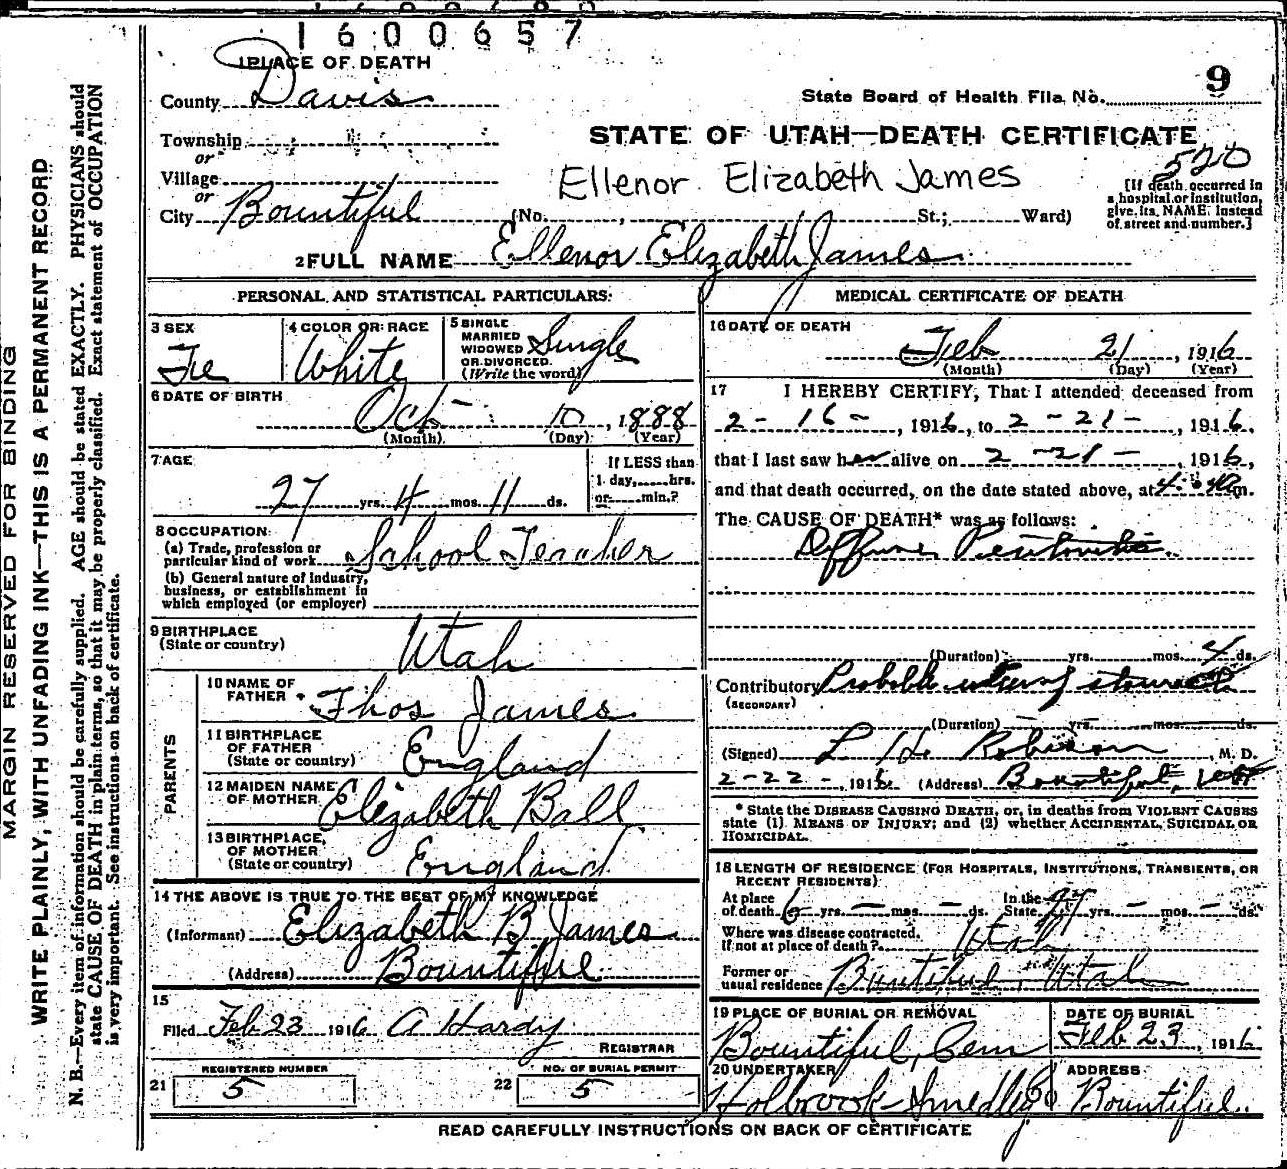 1600657
1 PLACE OF DEATH
9
County Davis
State Board of Health File No.
Township
or
STATE OF UTAH—DEATH CERTIFICATE
520
Village
or
Ellenor Elizabeth James
[If death occurred in
a hospital or institution,
give its NAME instead
of street and number.]
City Bountiful (No. , St.; Ward)
2 FULL NAME Ellenor Elizabeth James
PERSONAL AND STATISTICAL PARTICULARS:
3 SEX
Fe
4 COLOR OR RACE
White
5 SINGLE
MARRIED
WIDOWED
OR DIVORCED
(Write the word)
Single
6 DATE OF BIRTH
Oct 10, 1888
(Month) (Day) (Year)
7 AGE
27 yrs. 4 mos. 11 ds.
If LESS than
1 day, hrs.
or min.?
8 OCCUPATION
(a) Trade, profession or
particular kind of work School Teacher
(b) General nature of industry,
business, or establishment in
which employed (or employer)
9 BIRTHPLACE
(State or country) Utah
PARENTS
10 NAME OF
FATHER Thos James
11 BIRTHPLACE
OF FATHER
(State or country) England
12 MAIDEN NAME
OF MOTHER Elizabeth Ball
13 BIRTHPLACE
OF MOTHER
(State or country) England
14 THE ABOVE IS TRUE TO THE BEST OF MY KNOWLEDGE
(Informant) Elizabeth B James
(Address) Bountiful
15
Filed Feb 23 1916 A Hardy
REGISTRAR
21
REGISTERED NUMBER
5
22
NO. OF BURIAL PERMIT
5
MEDICAL CERTIFICATE OF DEATH
16 DATE OF DEATH
Feb 21, 1916
(Month) (Day) (Year)
17 I HEREBY CERTIFY, That I attended deceased from
2-16-, 1916, to 2-21-, 1916,
that I last saw her alive on 2-21-, 1916,
and that death occurred, on the date stated above, at 4:40 m.
The CAUSE OF DEATH* was as follows:
(Duration) yrs. mos. 4 ds.
Contributory
(SECONDARY)
(Duration) yrs. mos. ds.
(Signed) Robinson, M. D.
2-22-, 1916 (Address) Bountiful, Utah
* State the DISEASE CAUSING DEATH, or, in deaths from VIOLENT CAUSES
state (1) MEANS OF INJURY; and (2) whether ACCIDENTAL, SUICIDAL OR
HOMICIDAL.
18 LENGTH OF RESIDENCE (FOR HOSPITALS, INSTITUTIONS, TRANSIENTS, OR
RECENT RESIDENTS)
At place
of death 6 yrs. — mos. — ds.
In the
State 27 yrs. — mos. — ds.
Where was disease contracted,
if not at place of death? Utah
Former or
usual residence Bountiful, Utah
19 PLACE OF BURIAL OR REMOVAL
Bountiful, Cem
DATE OF BURIAL
Feb 23, 1916
20 UNDERTAKER
Holbrook Smedley Co
ADDRESS
Bountiful
READ CAREFULLY INSTRUCTIONS ON BACK OF CERTIFICATE
MARGIN RESERVED FOR BINDING
WRITE PLAINLY, WITH UNFADING INK—THIS IS A PERMANENT RECORD
N. B.—Every item of information should be carefully supplied. AGE should be stated EXACTLY. PHYSICIANS should
state CAUSE OF DEATH in plain terms, so that it may be properly classified. Exact statement of OCCUPATION
is very important. See instructions on back of certificate.